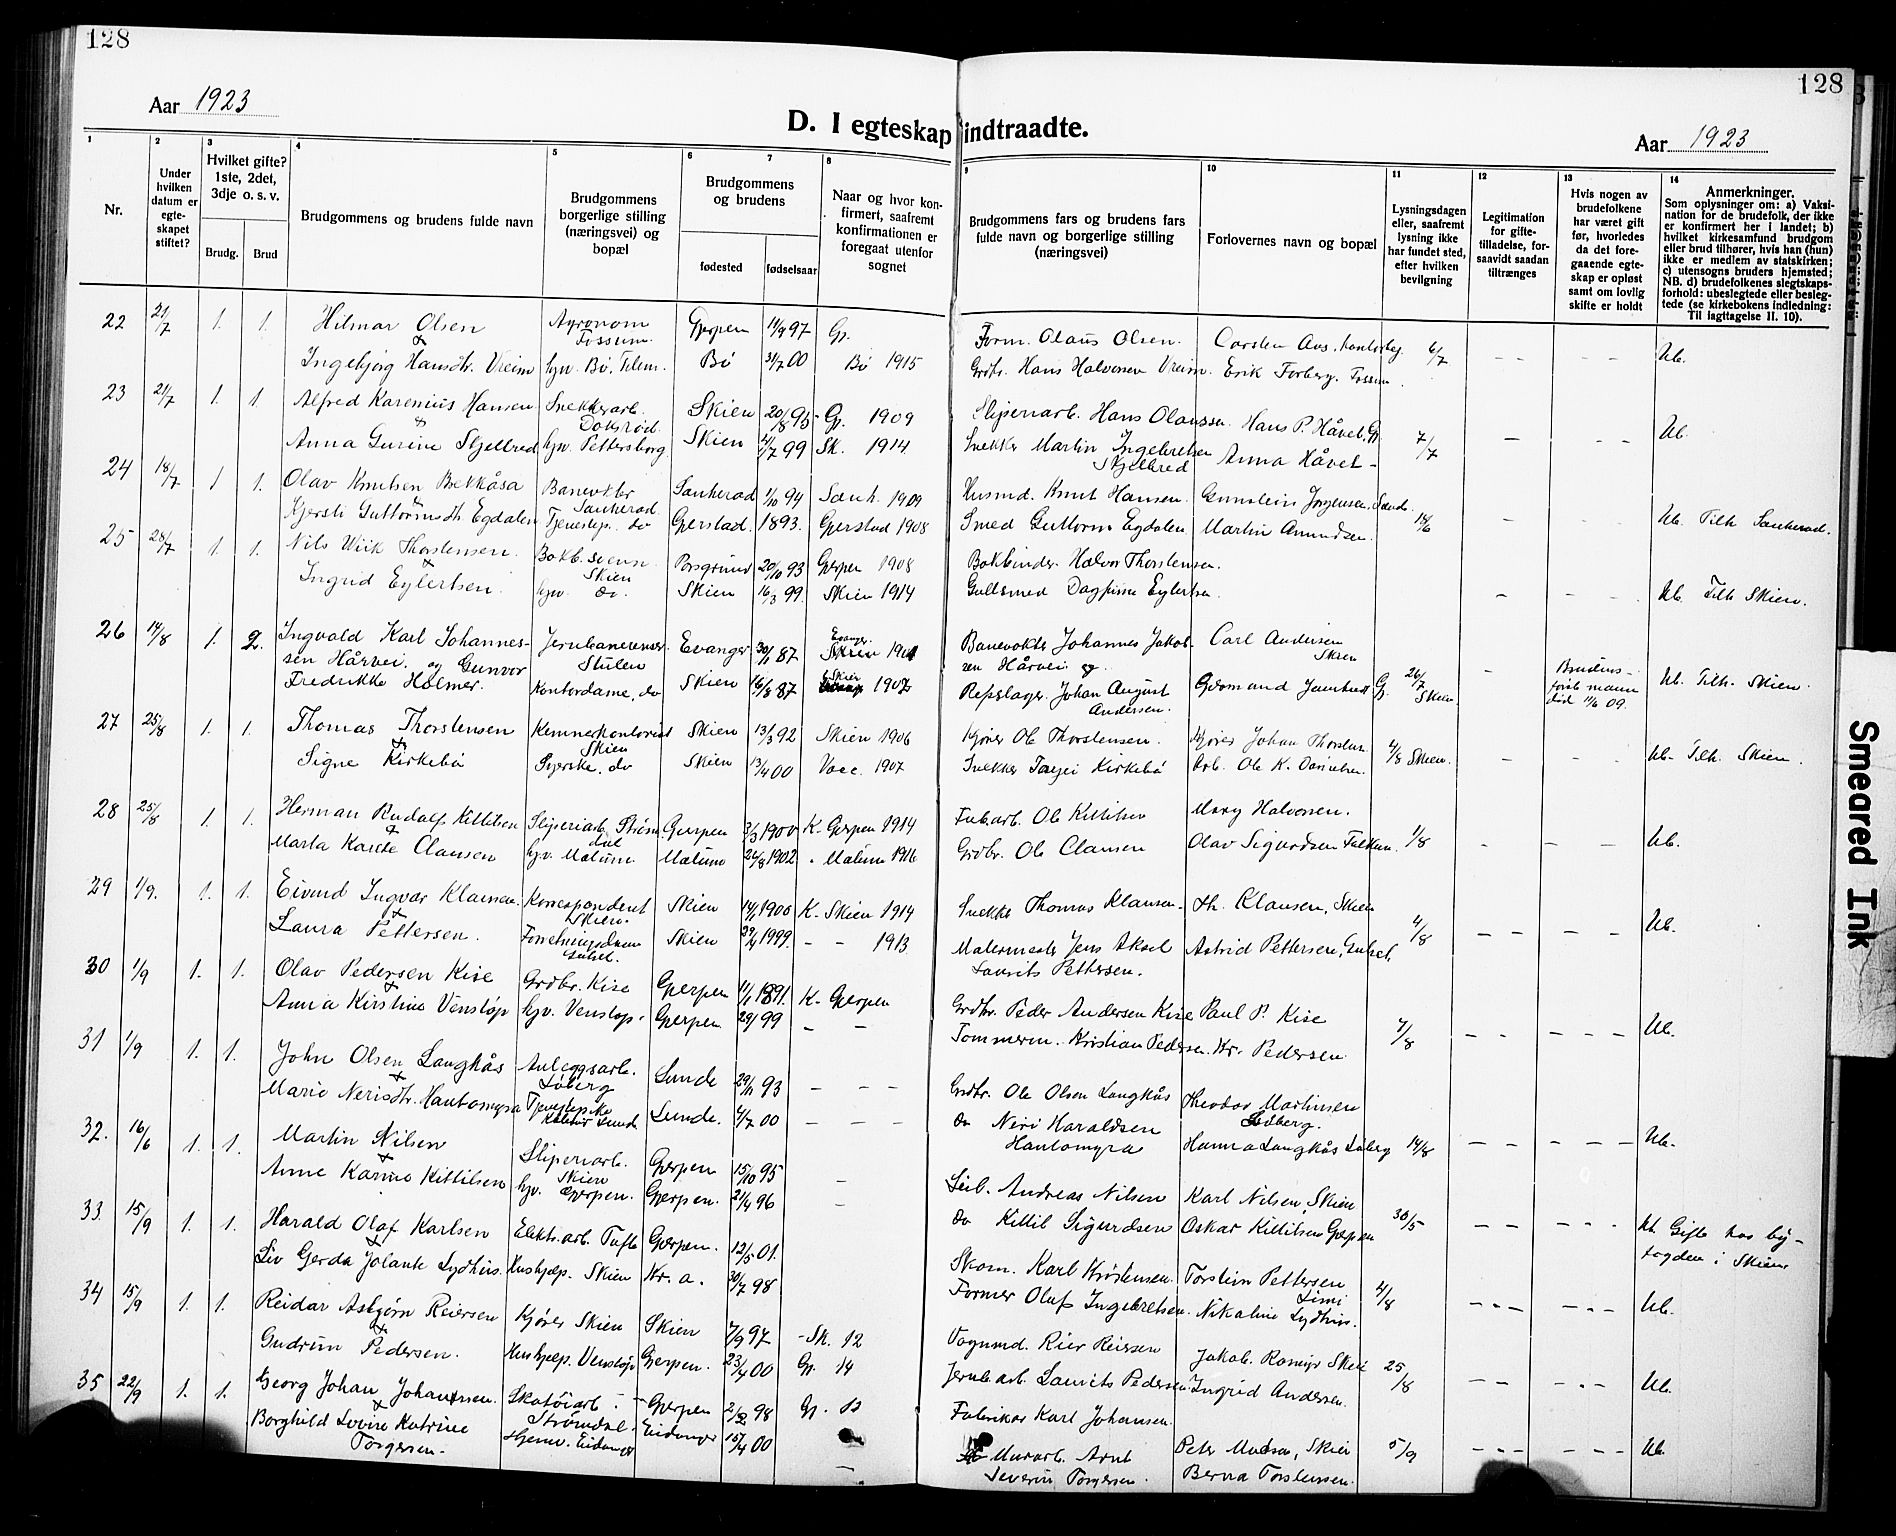 128
128
Aar 1923
D. I egteskap indtraadte.
Aar 1923
1
Nr.
2
Under
hvilken
datum er
egte-
skapet
stiftet?
3
Hvilket gifte?
1ste, 2det,
3dje o. s. v.
Brudg.
Brud
4
Brudgommens og brudens fulde navn
5
Brudgommens
borgerlige stilling
(næringsvei) og
bopæl
6
7
Brudgommens
og brudens
fødested
fødselsaar
8
Naar og hvor kon-
firmert, saafremt
konfirmationen er
foregaat utenfor
sognet
9
Brudgommens fars og brudens fars
fulde navn og borgerlige stilling
(næringsvei)
10
Forlovernes navn og bopæl
11
Lysningsdagen
eller, saafremt
lysning ikke
har fundet sted,
efter hvilken
bevilgning
12
Legitimation
for gifte-
tilladelse, for-
saavidt saadan
tiltrænges
13
Hvis nogen av
brudefolkene
har været gift
før, hvorledes
da det fore-
gaaende egte-
skap er opløst
samt om lovlig
skifte er holdt
14
Anmerkninger.
Som oplysninger om: a) Vaksi-
nation for de brudefolk, der ikke
er konfirmert her i landet; b)
hvilket kirkesamfund brudgom
eller brud tilhører, hvis han (hun)
ikke er medlem av statskirken;
c) utensogns bruders hjemsted;
NB. d) brudefolkenes slegtskaps-
forhold: ubeslegtede eller besleg-
tede (se kirkebokens indledning:
Til iagttagelse II. 10).
22 21/7 1. 1. Hilmar Olsen Agronom Gjerpen 11/9 97 Gp. Form. Olaus Olsen. Carsten Aas, 6/7 - - - - Ub.
& Fossum.
Ingebjørg Hansdtr. Vreim hjv. Bø. Telem. Bø 31/7 00 Bø 1915 Grdbr. Hans Halvorsen Vreim. Erik Forberg. Fossum.
23 21/7 1. 1. Alfred Karenius Hansen Snekkerarb. Skien 20/8 95 Gp. 1909 Sliperiarb. Hans Olaussen. Hans P. Håvet, Gp. 7/7 - - - Ub.
&
Anna Gurine Skjelbred hjv. Pettersborg Skien 4/7 99 Sk. 1914 Snekker Martin Ingebretsen Anna Håvet -
Skjelbred
24 18/7 1 1. Olav Knutsen Bekkåsa Banevokter Sauherad 1/10 94 Sauh. 1909 Husmd. Knut Hansen. Gunstein Jørgensen, Sauh. 18/6 - - - Ub. Tilh Sauherad.
& Sauherad.
Kjersti Guttormsdtr. Egdalen Tjenestep. do Gjerstad. 1893. Gjerstad 1908 Smed Guttorm Egdalen Martin Amundsen.
25 28/7 1. 1. Nils Wiik Thorstensen. Bokb. svenn Porsgrund 20/10 93 Gjerpen 1908 Bokbinder. Halvor Thorstensen.
Skien
Ingrid Eylertsen. hjv. do. Skien 16/3 99. Skien 1914 Gullsmed Dagfinn Eylertsen - - - Ub. Tilh Skien.
26 14/8 1. 2. Ingvald Karl Johannes- Jernbanerenser Evanger 30/1 87 Evanger. Banevokter Johannes Jakob- Carl Andersen
Skien
sen Hårvei. og Gunvor Stulen Skien 1901 sen Hårvei og
Fredrikke Holmer. Kontordame, do Skien 16/8 87 Skien 1902 Repslager. Johan August Gp. 26/7 Skien. - Brudens første mann død 11/6 09. Ub. Tilh. Skien.
Andersen.
27 25/8 1. 1. Thomas Thorstensen Kemnerkontorist Skien 13/3 92 Skien 1906 Kjører Ole Thorstensen. Kjører Johan Thorsten 4/8 Skien. - - - Ub. Tilh. Skien.
& Skien
Signe Kirkebø Syerske. do Skien 13/4 00 Vacc. 1907 Snekker Tarjei Kirkebø Arb. Ole K. Danielsen.
28 25/8 1. 1. Herman Rudolf Kittilsen Sliperiarb. Strøm- Gjerpen 3/3 1900 K. Gjerpen 1914 Fabarb. Ole Kittilsen Mary Halvorsen. 1/8 - - - Ub.
& dal
Marta Karete Clausen hjv. Melum Melum 26/8 1902 - Melum 1916 Grdbr. Ole Clausen Olav Sigurdsen Falkum.
29 1/9. 1. 1. Eivind Ingvar Klausen. Korrespondent Skien 14/1 1900 K. Skien 1914 Snekker Thomas Klausen. Th. Klausen, Skien 4/8 - - - - Ub.
& Skien.
Laura Pettersen. Skien 29/4 1999. - - 1913 Malermester Jens Aksel Astrid Pettersen, Gulset,
Gulset. Laurits Pettersen.
30 1/9 1. 1. Olav Pedersen Kise Grdbr. Kise Gjerpen 11/1 1891. K. Gjerpen Grdbr. Peder Andersen Kise Paul P. Kise 7/8 - - - - - Ub.
&
Anna Kirstine Venstøp hjv. Venstøp. Gjerpen 29/1 99 - - Tømmerm. Kristian Pedersen. Kr. Pedersen.
31 1/9 1. 1. John Olsen Langkås Anleggsarb. Lunde 29/11 93 - - - Grdbr. Ole Olsen Langkås Theodor Martinsen
& Løberg Løberg.
Marie Nerisdtr. Hantomyra Tjenestepike Lunde. 4/7 00 - - - do Neri Haraldsen Hanna Langkås Løberg 14/8 - - - - - Ub.
Hantomyra
32. 16/6 1. 1. Martin Nilsen Sliperiarb. Gjerpen 15/10 95 - Leil. Andreas Nilsen Karl Nilsen, Skien 30/5 - - - - - Ub. Gifte hos by-
& Skien
Anne Karine Kittilsen hjv. Gjerpen. Gjerpen. 21/4 96 - do Kittil Sigurdsen Oskar Kittilsen Gjerpen fogden i Skien
33. 15/9 1. 1. Harald Olaf Karlsen Elektr.arb. Tufte Gjerpen. 12/5 01. Skom. Karl Kristensen. Torstein Pettersen 4/8 - - - - - - Ub.
& Limi
Liv Gerda Jolante Lydhus. Hushjelp. Skien Kr.a. 30/7 98 Former Olaf Ingebretsen. Nikoline Lydhus.
34 15/9 1. 1. Reidar Asbjørn Reiersen Kjører Skien Skien 7/9 97 - Sk. 12 Vognmd. Reier Reiersen Jakob. Skien 25/8 - - - - - - Ub.
&
Gudrun Pedersen. Hushjelp. Venstøp Gjerpen. 23/4 00 Gp. 14 Jernb.arb. Laurits Pedersen Ingrid Andersen.
35 22/9 1. 1. Georg Johan Johansen. Skotøiarb. - Gjerpen 2/2 98 Gp. 13 Fabrikar Karl Johansen. Peter Madsen, Skien 5/9 - - - - - - Ub.
& Strømdal.
Borghild Lovise Katrine Hjemv. Eidanger Eidanger 15/4 00 - Murarb. Arnt Berna Torstensen.
Torgersen. Severin Torgersen.
Smeared Ink